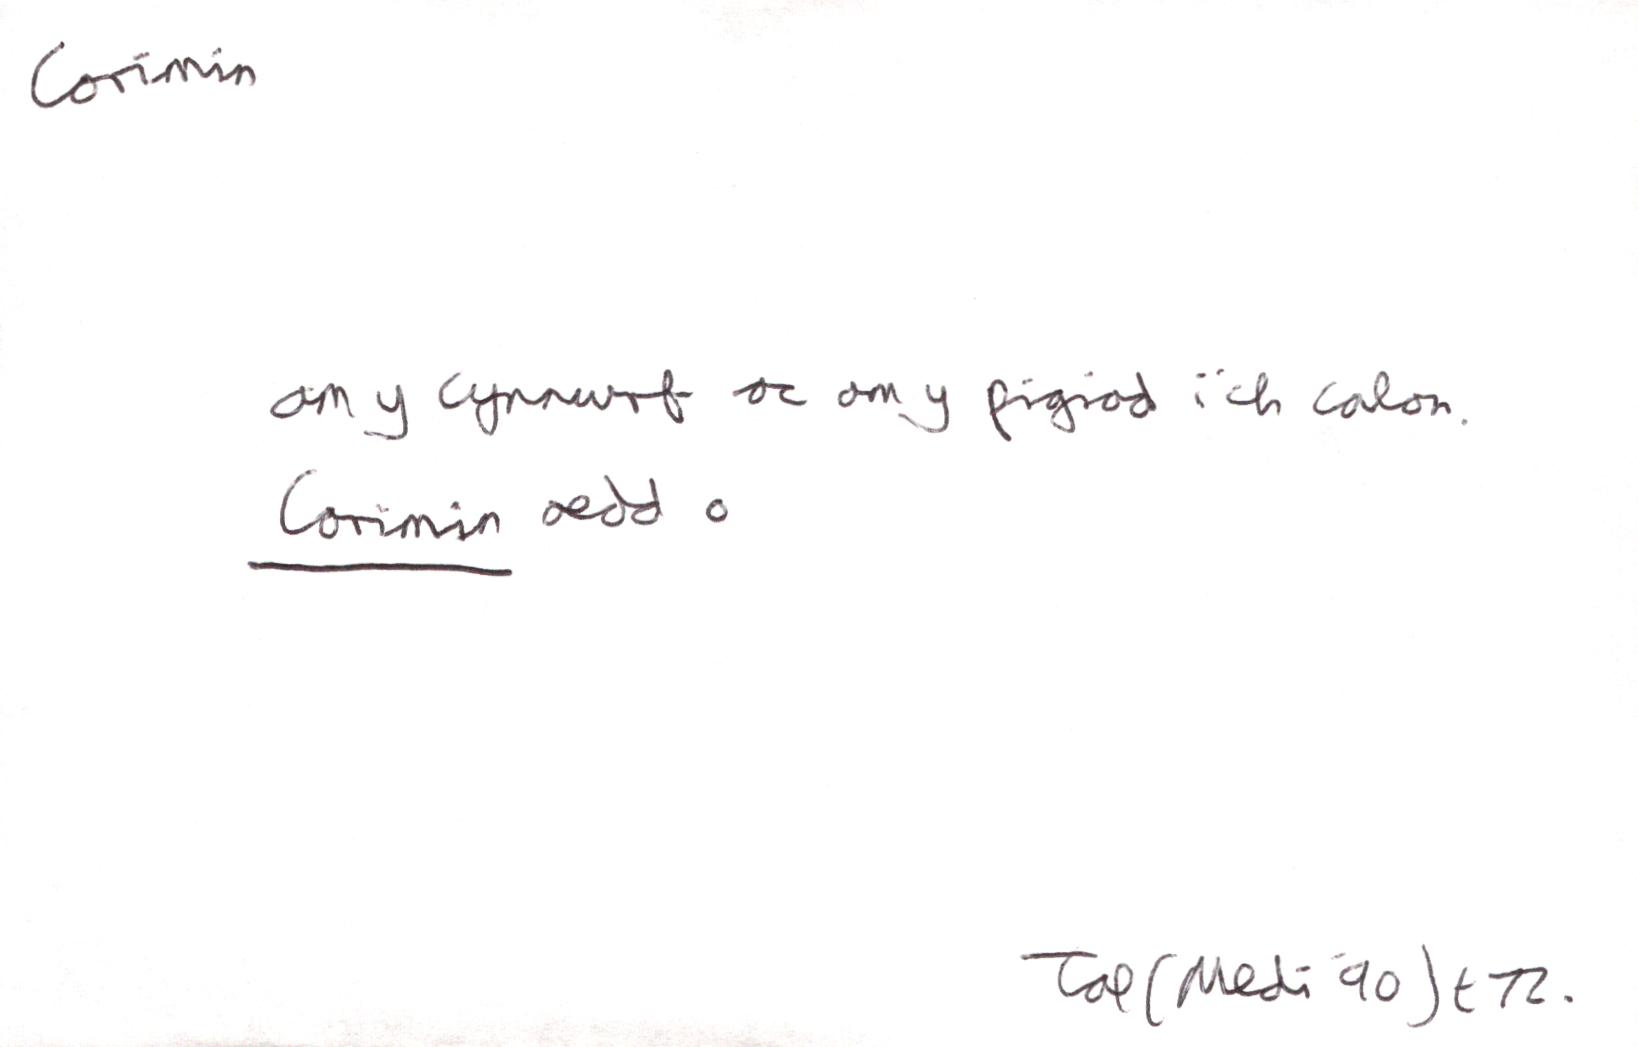 Corimin
am y cynnwrf ac am y pigiad i'ch calon.
Corimin oedd o
(Medi '90) t 72.